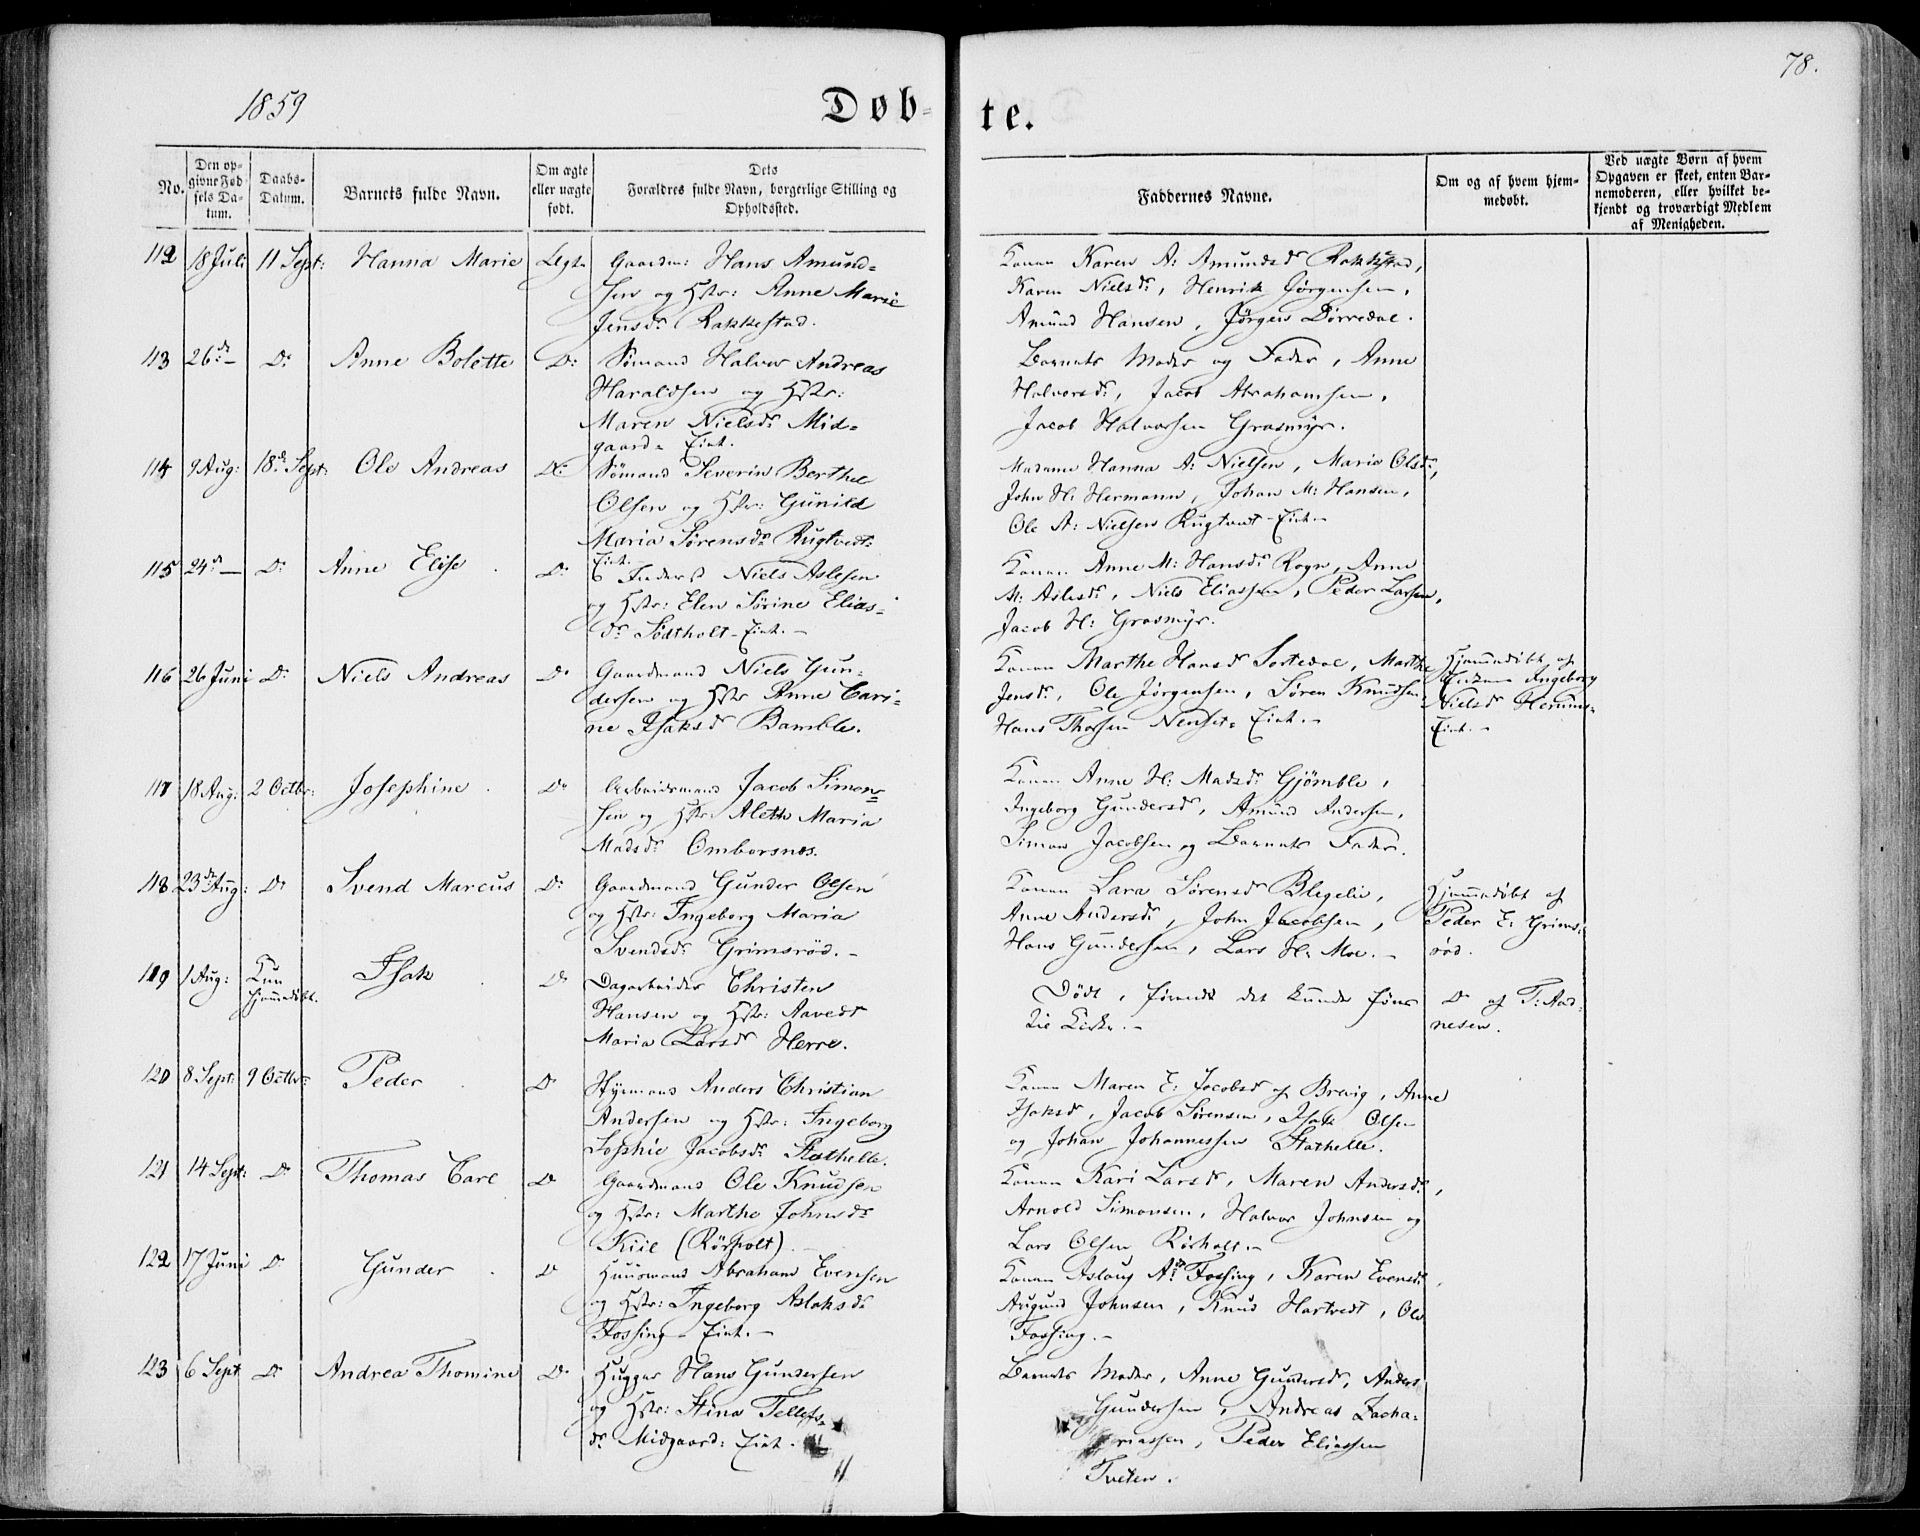 1859
Døb-
te.
78.
No.
Den op-
givne Fød
sels Da-
tum.
Daabs-
Datum.
Barnets fulde Navn.
Om ægte
eller uægte
født.
Dets
Forældres fulde Navn, borgerlige Stilling og
Opholdssted.
Faddernes Navne.
Om og af hvem hjem-
medøbt.
Ved uægte Børn af hvem
Opgaven er skeet, enten Bar-
nemoderen, eller hvilket be-
kjendt og troværdigt Medlem
af Menigheden.
112 18 Juli 11 Sept: Hanna Marie Ægte Gaardm: Hans Amund-
sen og Hstr: Anne Marie
Jensdr Rakkestad.
Konen Karen A: Amundsdr Rakkestad,
Karen Nielsdr, Henrik Jørgensen,
Amund Hansen, Jørgen Dørredal.
113 26de — Do Anne Bolette Do: Sømand Halvor Andreas
Haraldsen og Hstr:
Maren Nielsdr Mid-
gaard- Eiet.
Barnets Moder og Fader, Anne
Halvorsdr, Jacob Abrahamsen,
Jacob Halvorsen Grasmyr.
114 9 Aug: 18de Sept: Ole Andreas Do: Sømand Severin Berthel
Olsen og Hstr: Gunild
Maria Sørensdr Rugtvedt-
Eiet.
Madame Hanna A: Nielsen, Maria Olsdr,
John H: Hermann, Johan M: Hansen,
Ole A: Nielsen Rugtvedt-Eiet.
115 24de — Do Anne Elise Do Inderst Niels Aslesen
og Hstr: Elen Sørine Elias-
dr Sødtholt-Eiet. —
Konen Anne M: Hansdr Rogn, Anne
M: Aslesdr, Niels Eliassen, Peder Larsen,
Jacob H: Grasmyr.
116 26 Juni Do Niels Andreas Do Gaardmand Niels Gun-
dersen og Hstr Anne Cari-
ne Isaksdr Bamble.
Konen Marthe Hansdr Sortedal, Marthe
Jensdr, Ole Jørgensen, Søren Knudsen,
Hans Thorsen Nenset- Eiet. —
Hjemmedøbt af
Ingeborg
Nielsdr Herum-
Eiet. —
117 18 Aug: 2 Octbr: Josephine Do Arbeidsmand Jacob Simon-
sen og Hstr: Aleth Maria
Madsdr Omborsnes.
Konen Anne H: Madsdr Gjømble,
Ingeborg Gundersdr, Amund Andersen,
Simon Jacobsen og Barnets Fader.
118 23de Aug: Do Svend Marcus Do: Gaardmand Gunder Olsen
og Hstr: Ingeborg Maria
Svendsdr Grimsrød. —
Konen Lara Sørensdr Blegelie,
Anne Andersdr, John Jacobsen,
Hans Gundersen, Lars H: Moe. —
Hjemmedøbt af
Peder E: Grims-
rød.
119 1 Aug: Kun
hjemmedøbt. Isak Do Dagarbeider Christen
Hansen og Hstr: Aavedt
Maria Larsdr Herre.
Dødt, førend det kunde føres
til Kirke. —
Do af T: Aad-
nesen.
120 8 Sept: 9 Octbr: Peder Do Styrmand Anders Christian
Andersen og Hstr: Ingeborg
Sophie Jacobsdr Stathelle.
Konen Maren E: Jacobsdr af Brevig, Anne
Isaksdr, Jacob Sørensen, Isak Olsen
og Johan Johannessen Stathelle.
121 14 Sept: Do Thomas Carl Do Gaardmand Ole Knudsen
og Hstr: Marthe Johnsdr
Kiil (Rørholt).
Konen Kari Larsdr, Maren Andersdr,
Arnold Simonsen, Halvor Johnsen og
Lars Olsen Rørholt. —
122 17 Juni Do Gunder Do Huusmand Abraham Evensen
og Hstr: Ingeborg Aslaksdr
Fossing- Eiet. —
Konen Aslaug A:dr Fossing, Karen Evensdr,
Augund Johnsen, Knud Hartvedt, Ole
Fossing. —
123 6 Sept Do Andrea Thomine Do Hugger Hans Gundersen
og Hstr: Stina Tellefs-
dr Midgaard: Eiet. —
Barnets Moder, Anne Gundersdr, Anders
Gundersen, Andreas Zacha-
riassen, Peder Eliassen
Tveten.